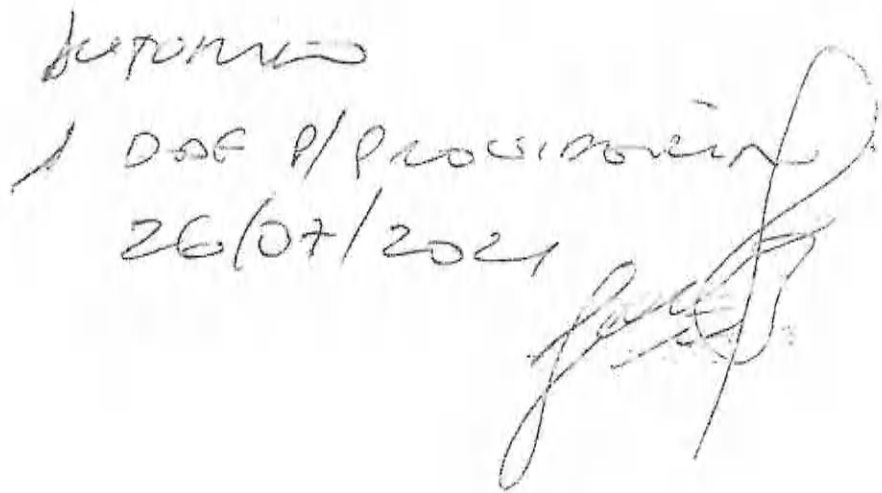 AUTORIZO
1 DAF P/ PROVIDÊNCIA
26/07/2021